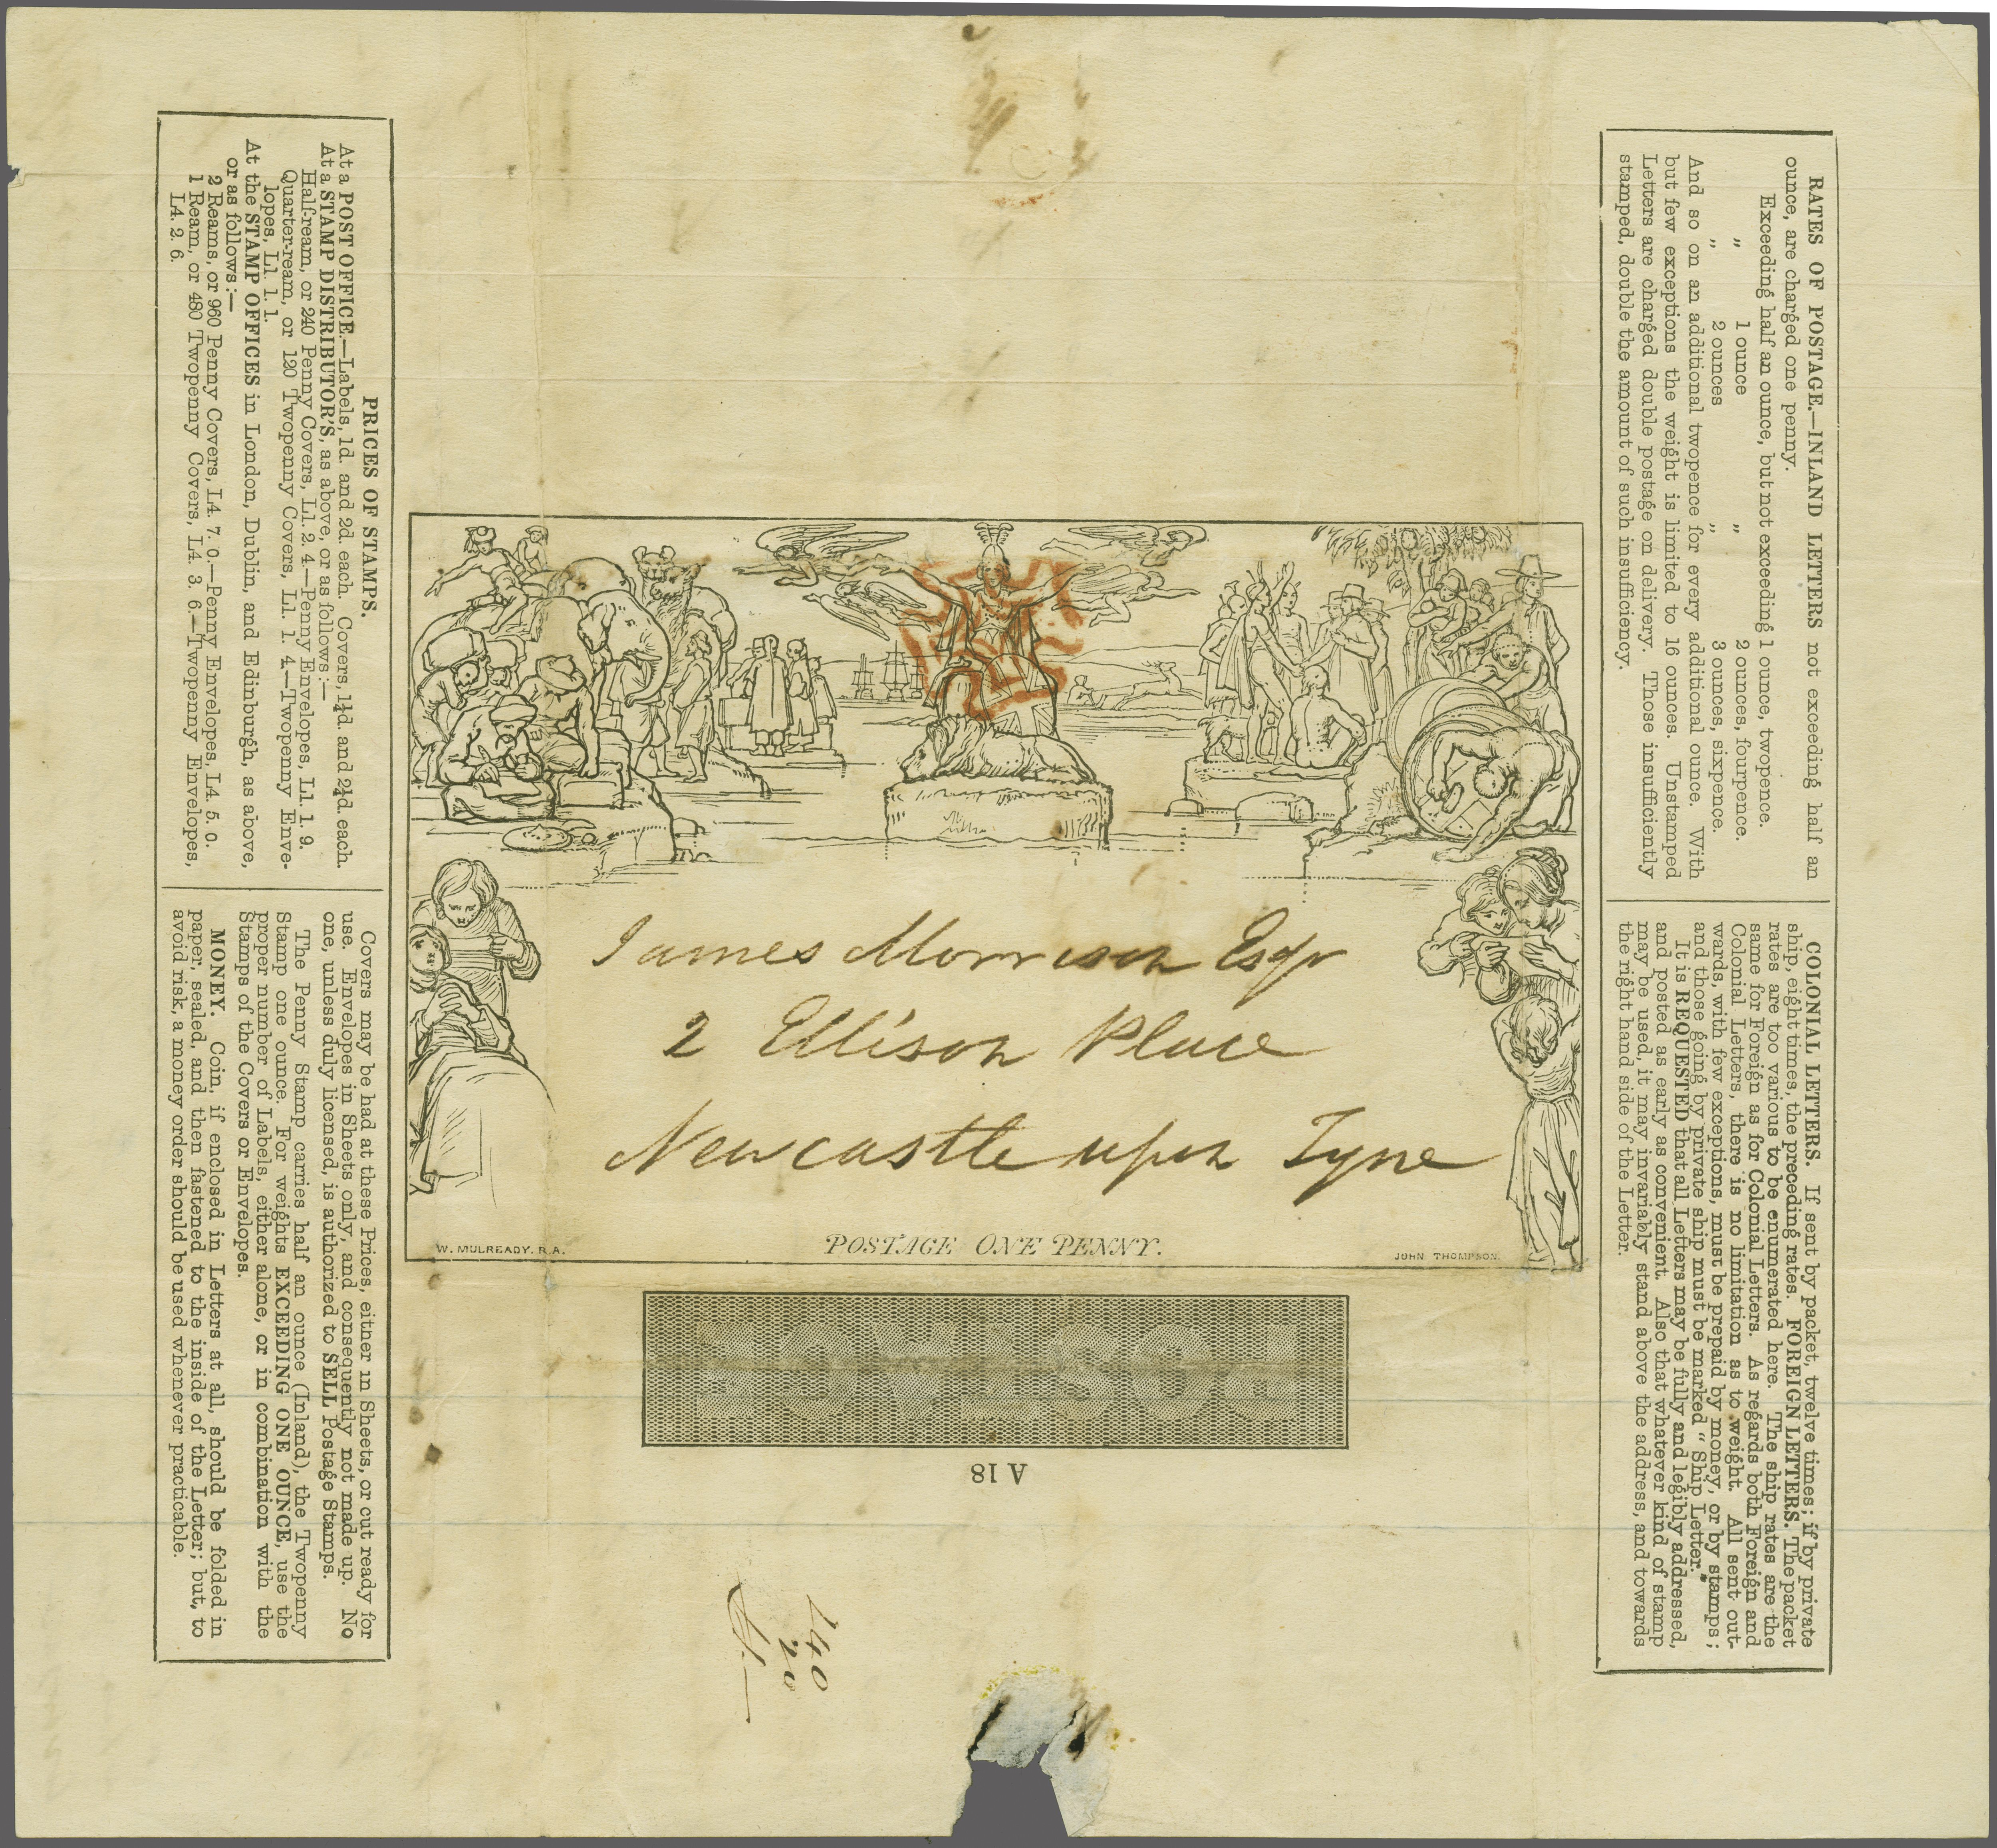 PRICES OF STAMPS.
At a POST OFFICE.—Labels, 1d. and 2d. each. Covers, 1¼d. and 2¼d. each.
At a STAMP DISTRIBUTOR'S, as above, or as follows:—
Half-ream, or 240 Penny Covers, L1. 2. 4.—Penny Envelopes, L1. 1. 9.
Quarter-ream, or 120 Twopenny Covers, L1. 1. 4—Twopenny Enve-
lopes, L1. 1. 1.
At the STAMP OFFICES in London, Dublin, and Edinburgh, as above,
or as follows:—
2 Reams, or 960 Penny Covers, L4. 7. 0.—Penny Envelopes, L4. 5. 0.
1 Ream, or 480 Twopenny Covers, L4. 3. 6.—Twopenny Envelopes,
L4. 2. 6.
Covers may be had at these Prices, either in Sheets, or cut ready for
use. Envelopes in Sheets only, and consequently not made up. No
one, unless duly licensed, is authorized to SELL Postage Stamps.
The Penny Stamp carries half an ounce (Inland), the Twopenny
Stamp one ounce. For weights EXCEEDING ONE OUNCE, use the
proper number of Labels, either alone, or in combination with the
Stamps of the Covers or Envelopes.
MONEY. Coin, if enclosed in Letters at all, should be folded in
paper, sealed, and then fastened to the inside of the Letter; but, to
avoid risk, a money order should be used whenever practicable.
James Morrison Esqr
2 Ellison Place
Newcastle upon Tyne
W. MULREADY. R.A.
POSTAGE ONE PENNY.
JOHN THOMPSON.
POSTAGE
A 18
140
20
RATES OF POSTAGE.—INLAND LETTERS not exceeding half an
ounce, are charged one penny.
Exceeding half an ounce, but not exceeding 1 ounce, twopence.
„ 1 ounce „ 2 ounces, fourpence.
„ 2 ounces „ 3 ounces, sixpence.
And so on an additional twopence for every additional ounce. With
but few exceptions the weight is limited to 16 ounces. Unstamped
Letters are charged double postage on delivery. Those insufficiently
stamped, double the amount of such insufficiency.
COLONIAL LETTERS. If sent by packet, twelve times; if by private
ship, eight times, the preceding rates. FOREIGN LETTERS. The packet
rates are too various to be enumerated here. The ship rates are the
same for Foreign as for Colonial Letters. As regards both Foreign and
Colonial Letters, there is no limitation as to weight. All sent out-
wards, with few exceptions, must be prepaid by money, or by stamps;
and those going by private ship must be marked "Ship Letter."
It is REQUESTED that all Letters may be fully and legibly addressed,
and posted as early as convenient. Also that whatever kind of stamp
may be used, it may invariably stand above the address, and towards
the right hand side of the Letter.